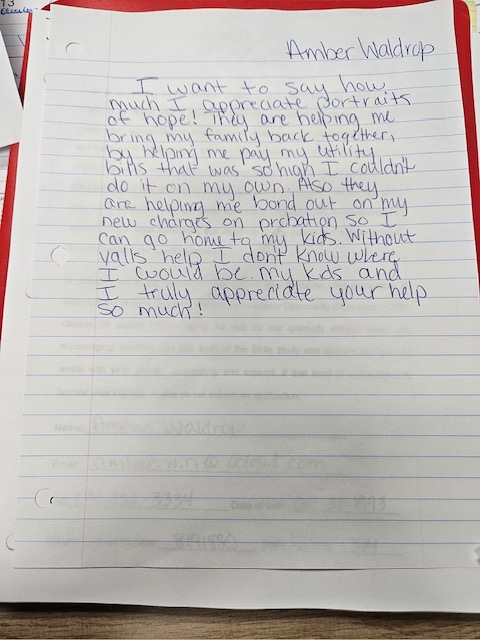 Amber Waldrop
I want to say how
much I appreciate portraits
of hope! They are helping me
bring my family back together,
by helping me pay my utility
bills that was so high I couldn't
do it on my own. Also they
are helping me bond out on my
new charges on probation so I
can go home to my kids. Without
yalls help I don't know where
I would be. my kids and
I truly appreciate your help
so much!